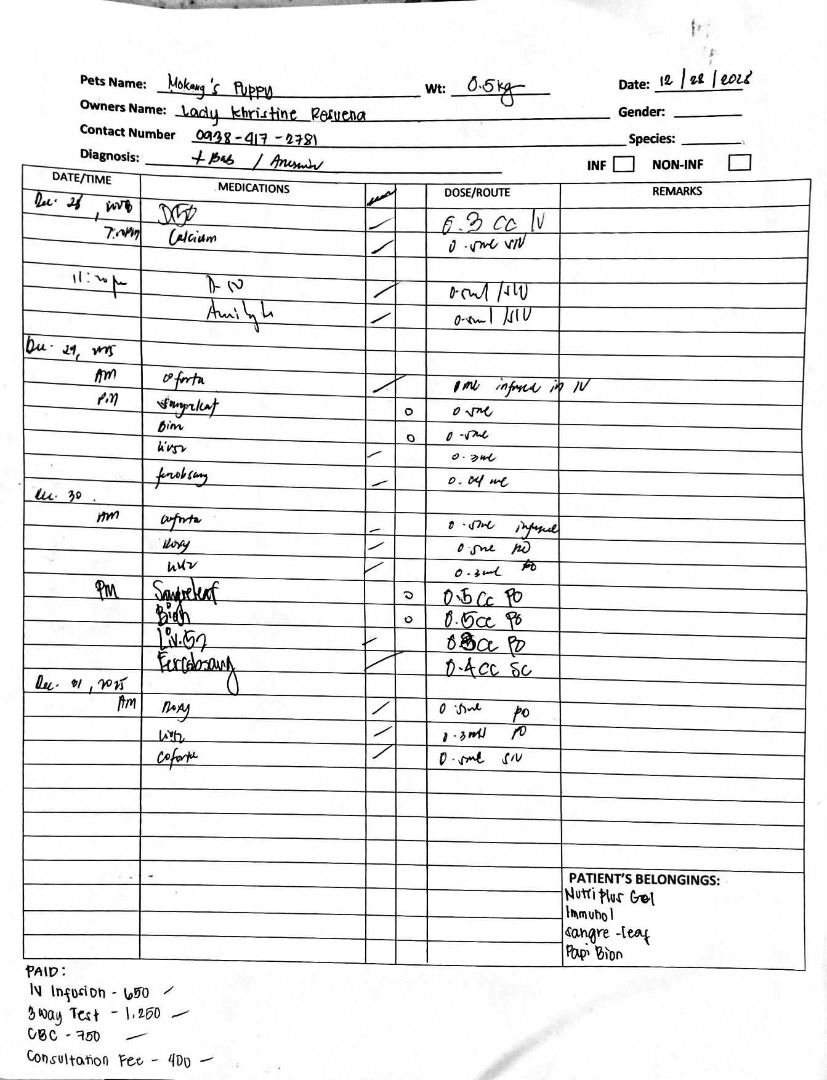 Pets Name: Mokang's Puppy Wt: 0.5kg Date: 12/28/2025
Owners Name: Lady Khristine Resuena Gender:
Contact Number 0938-417-2781 Species:
Diagnosis: + Bab / Anemia INF NON-INF
DATE/TIME MEDICATIONS DOSE/ROUTE REMARKS
Dec. 28, D50 6.3 CC IV
Calcium 0.5ml SIV
D-10 0.5ml /SIV
0.5ml /SIV
Dec. 29, 2025
AM infused in IV
PM Sangreleaf 0.5ml
0.5ml
Liv52 0.3ml
ferrobsang 0.04 ml
Dec. 30
AM coforta 0.5ml infused
Doxy 0.5ml PO
Liv52 0.3ml PO
PM Sangreleaf 0.5cc PO
0.5cc PO
Liv.52 PO
Fercobsang 0.4cc SC
Dec. 31, 2025
AM Doxy 0.5ml PO
Liv52 0.3ml PO
Coforta 0.5ml SIV
PATIENT'S BELONGINGS:
Nutri Plus Gel
Immunol
sangre-leaf
Papi Bion
PAID:
IV Infusion - 650
3way Test - 1,250
CBC - 750
Consultation Fee - 400